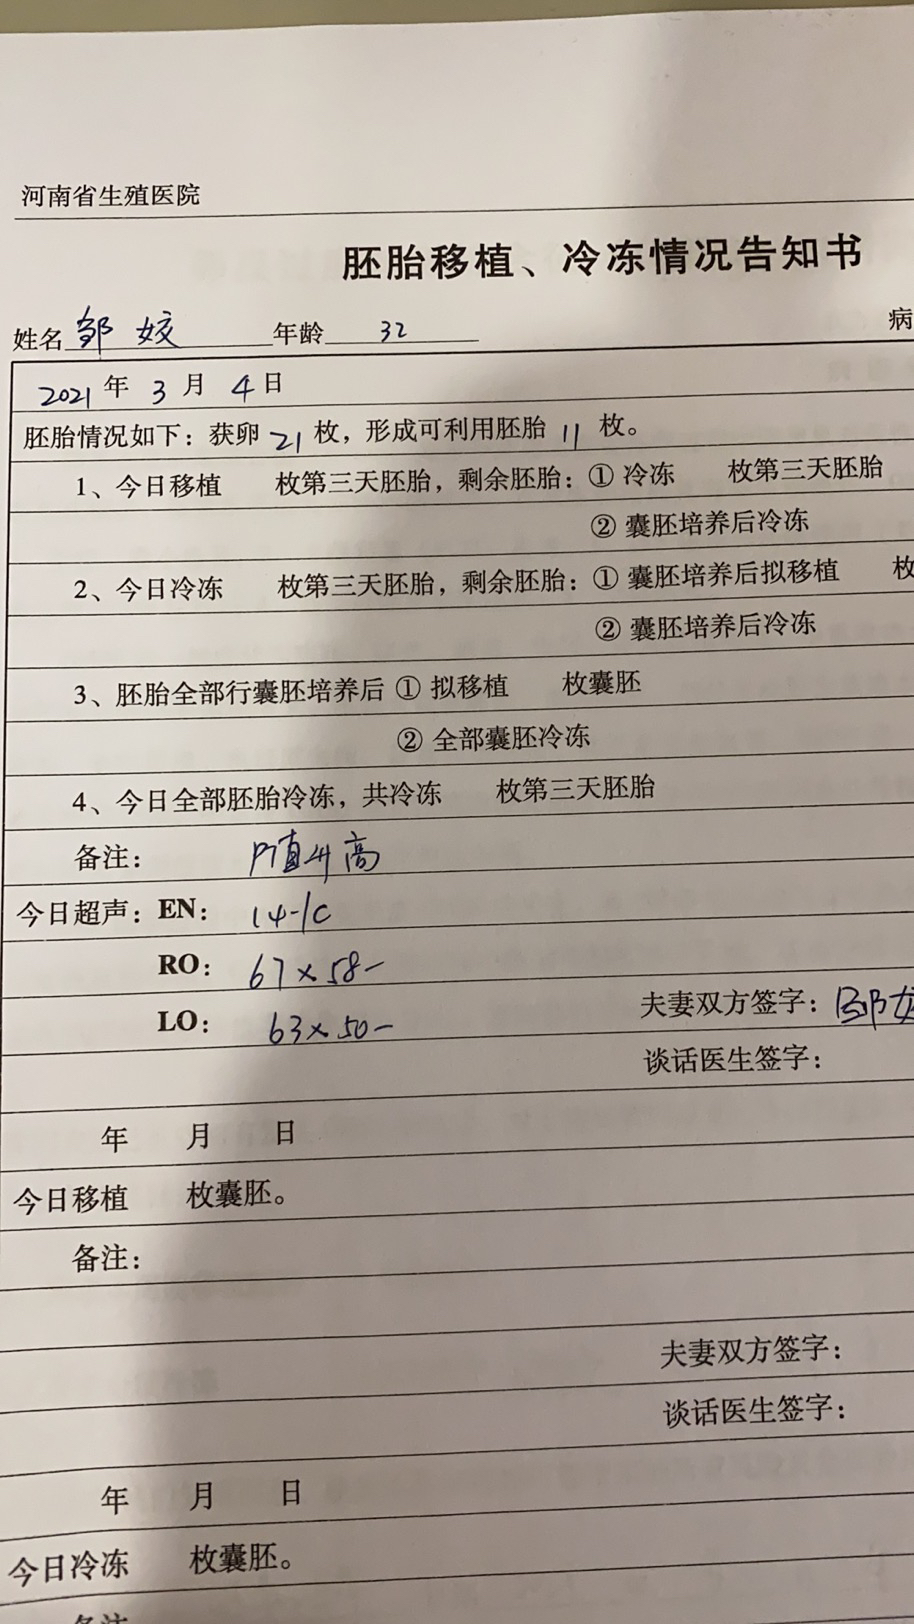 河南省生殖医院
胚胎移植、冷冻情况告知书
姓名 邹 姣 年龄 32 病
2021 年 3 月 4 日
胚胎情况如下：获卵 21 枚，形成可利用胚胎 11 枚。
1、今日移植 枚第三天胚胎，剩余胚胎：① 冷冻 枚第三天胚胎
② 囊胚培养后冷冻
2、今日冷冻 枚第三天胚胎，剩余胚胎：① 囊胚培养后拟移植 枚
② 囊胚培养后冷冻
3、胚胎全部行囊胚培养后 ① 拟移植 枚囊胚
② 全部囊胚冷冻
4、今日全部胚胎冷冻，共冷冻 枚第三天胚胎
备注： P值升高
今日超声：EN： 14-/C
RO： 67×58-
LO： 63×50-
夫妻双方签字：邹姣
谈话医生签字：
年 月 日
今日移植 枚囊胚。
备注：
夫妻双方签字：
谈话医生签字：
年 月 日
今日冷冻 枚囊胚。